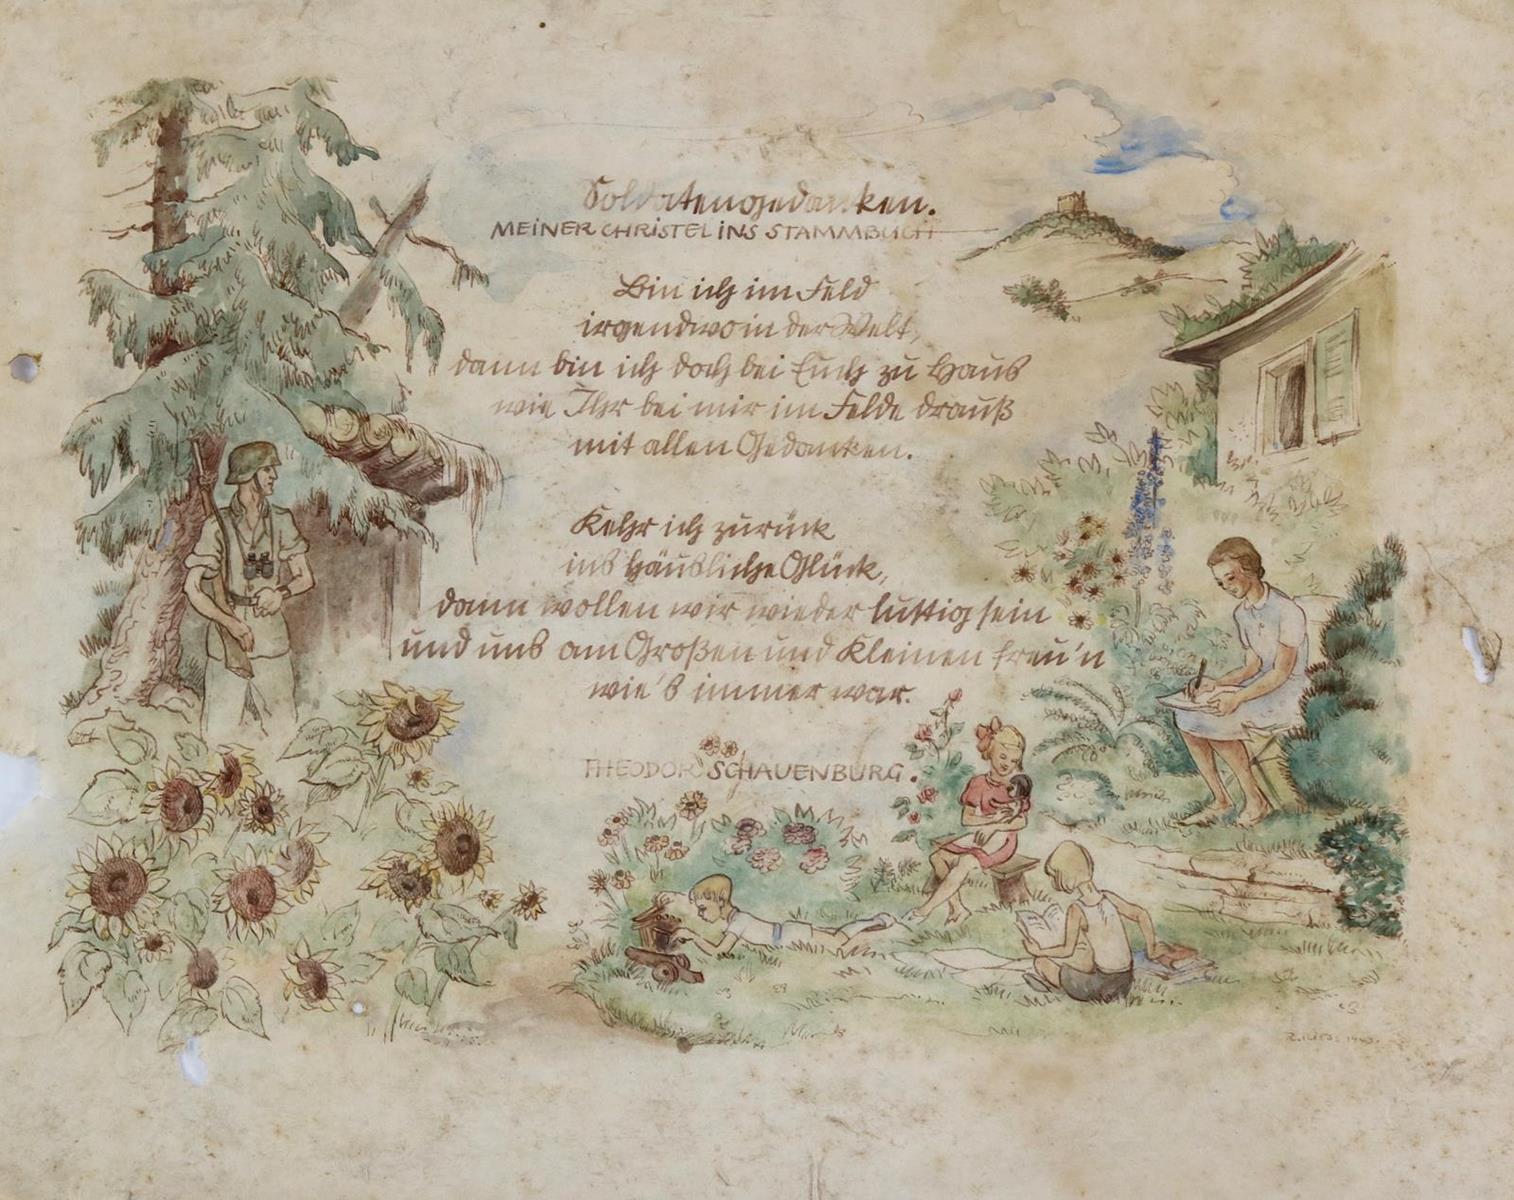 Soldatengedanken.
MEINER CHRISTEL INS STAMMBUCH
Bin ich im Feld
irgendwo in der Welt,
dann bin ich doch bei Euch zu Haus
wie Ihr bei mir im Felde drauß
mit allen Gedanken.
Kehr ich zurück
ins häusliche Glück,
dann wollen wir wieder lustig sein
und uns am Großen und Kleinen freu'n
wie's immer war.
THEODOR SCHAUENBURG.